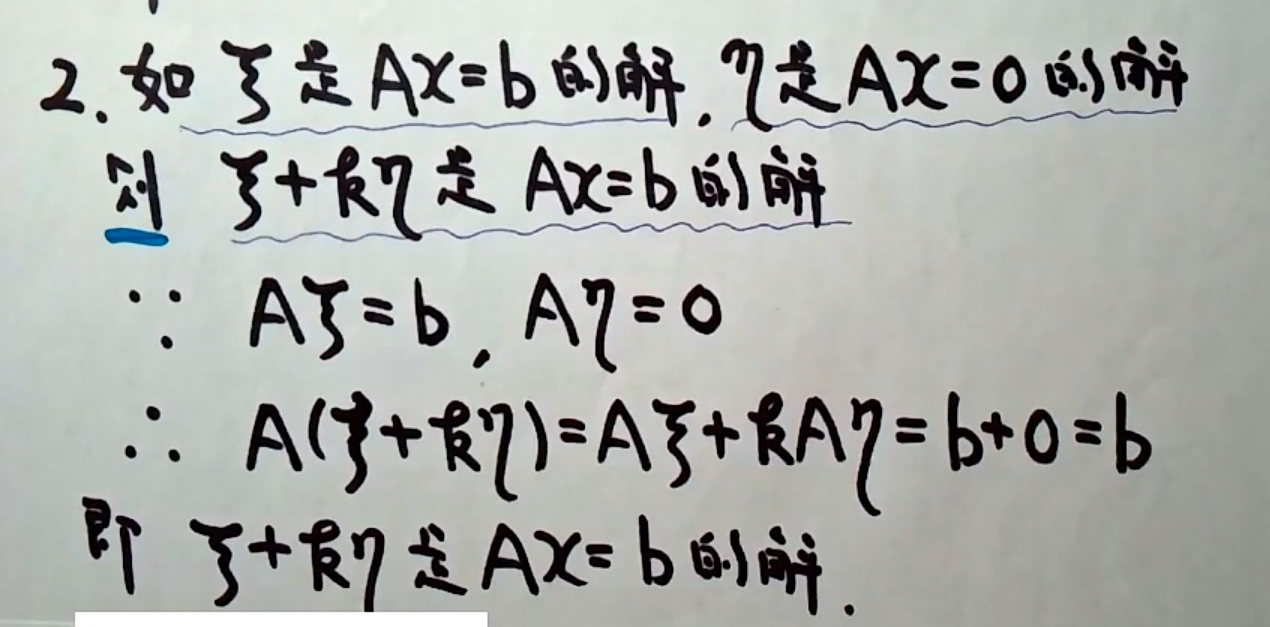 2. 如 ξ 是 Ax=b 的解, η是 Ax=0 的解
则 ξ+kη 是 Ax=b 的解
∵ Aξ=b, Aη=0
∴ A(ξ+kη)=Aξ+kAη=b+0=b
即 ξ+kη 是 Ax=b 的解.